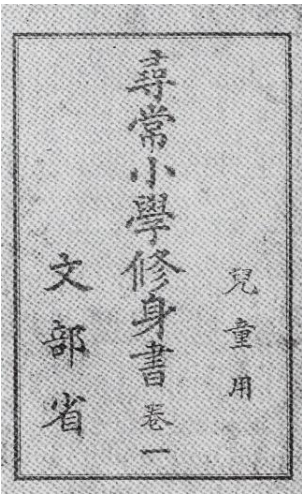 兒童用
尋常小學修身書 卷一
文部省